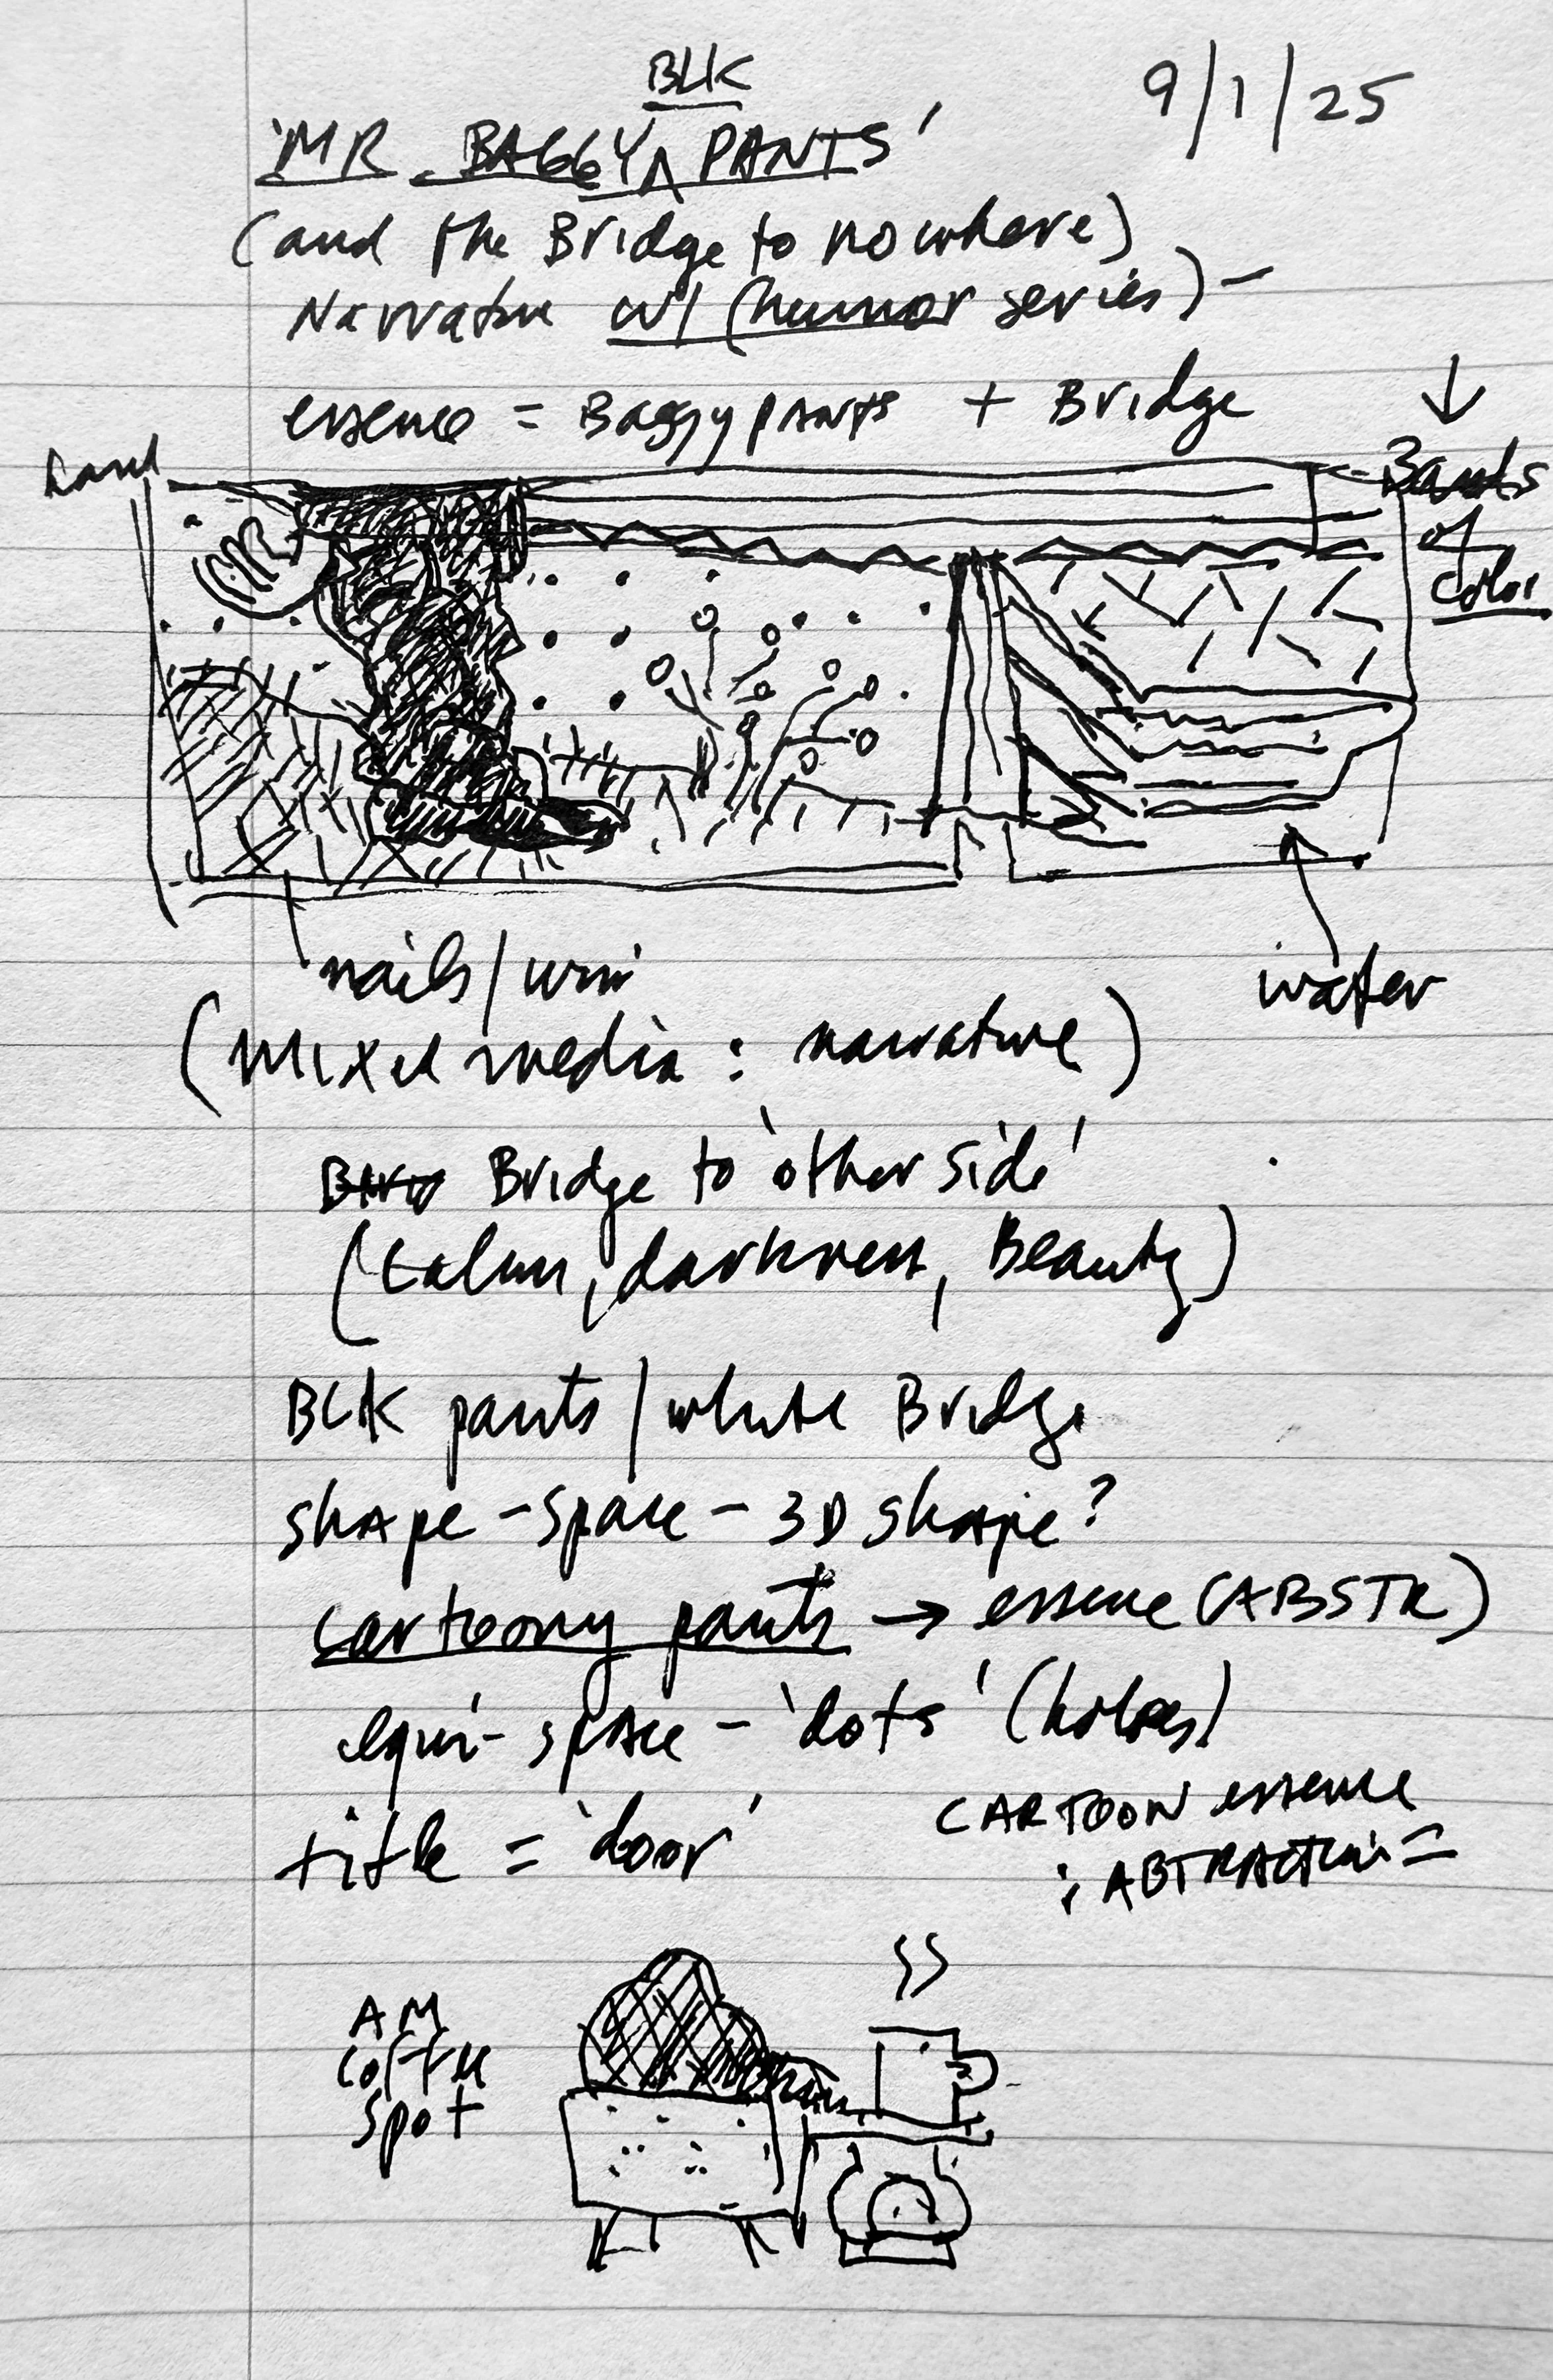 9/1/25
BLK
'MR. BAGGY ^ PANTS'
(and the Bridge to nowhere)
Narrative w/ (humor series) -
essence = Baggy pants + Bridge
Bands
of
color
MR
nails/wire
water
(Mixed media: narrative)
Bridge to 'other side'
(darkness, Beauty)
BLK pants/white Bridge
shape - space - 3D shape?
cartoony pants → essence (ABSTR)
equi-space - 'dots' (holes)
title = 'door'
CARTOON essence
: ABTRACTION =
AM
coffee
spot